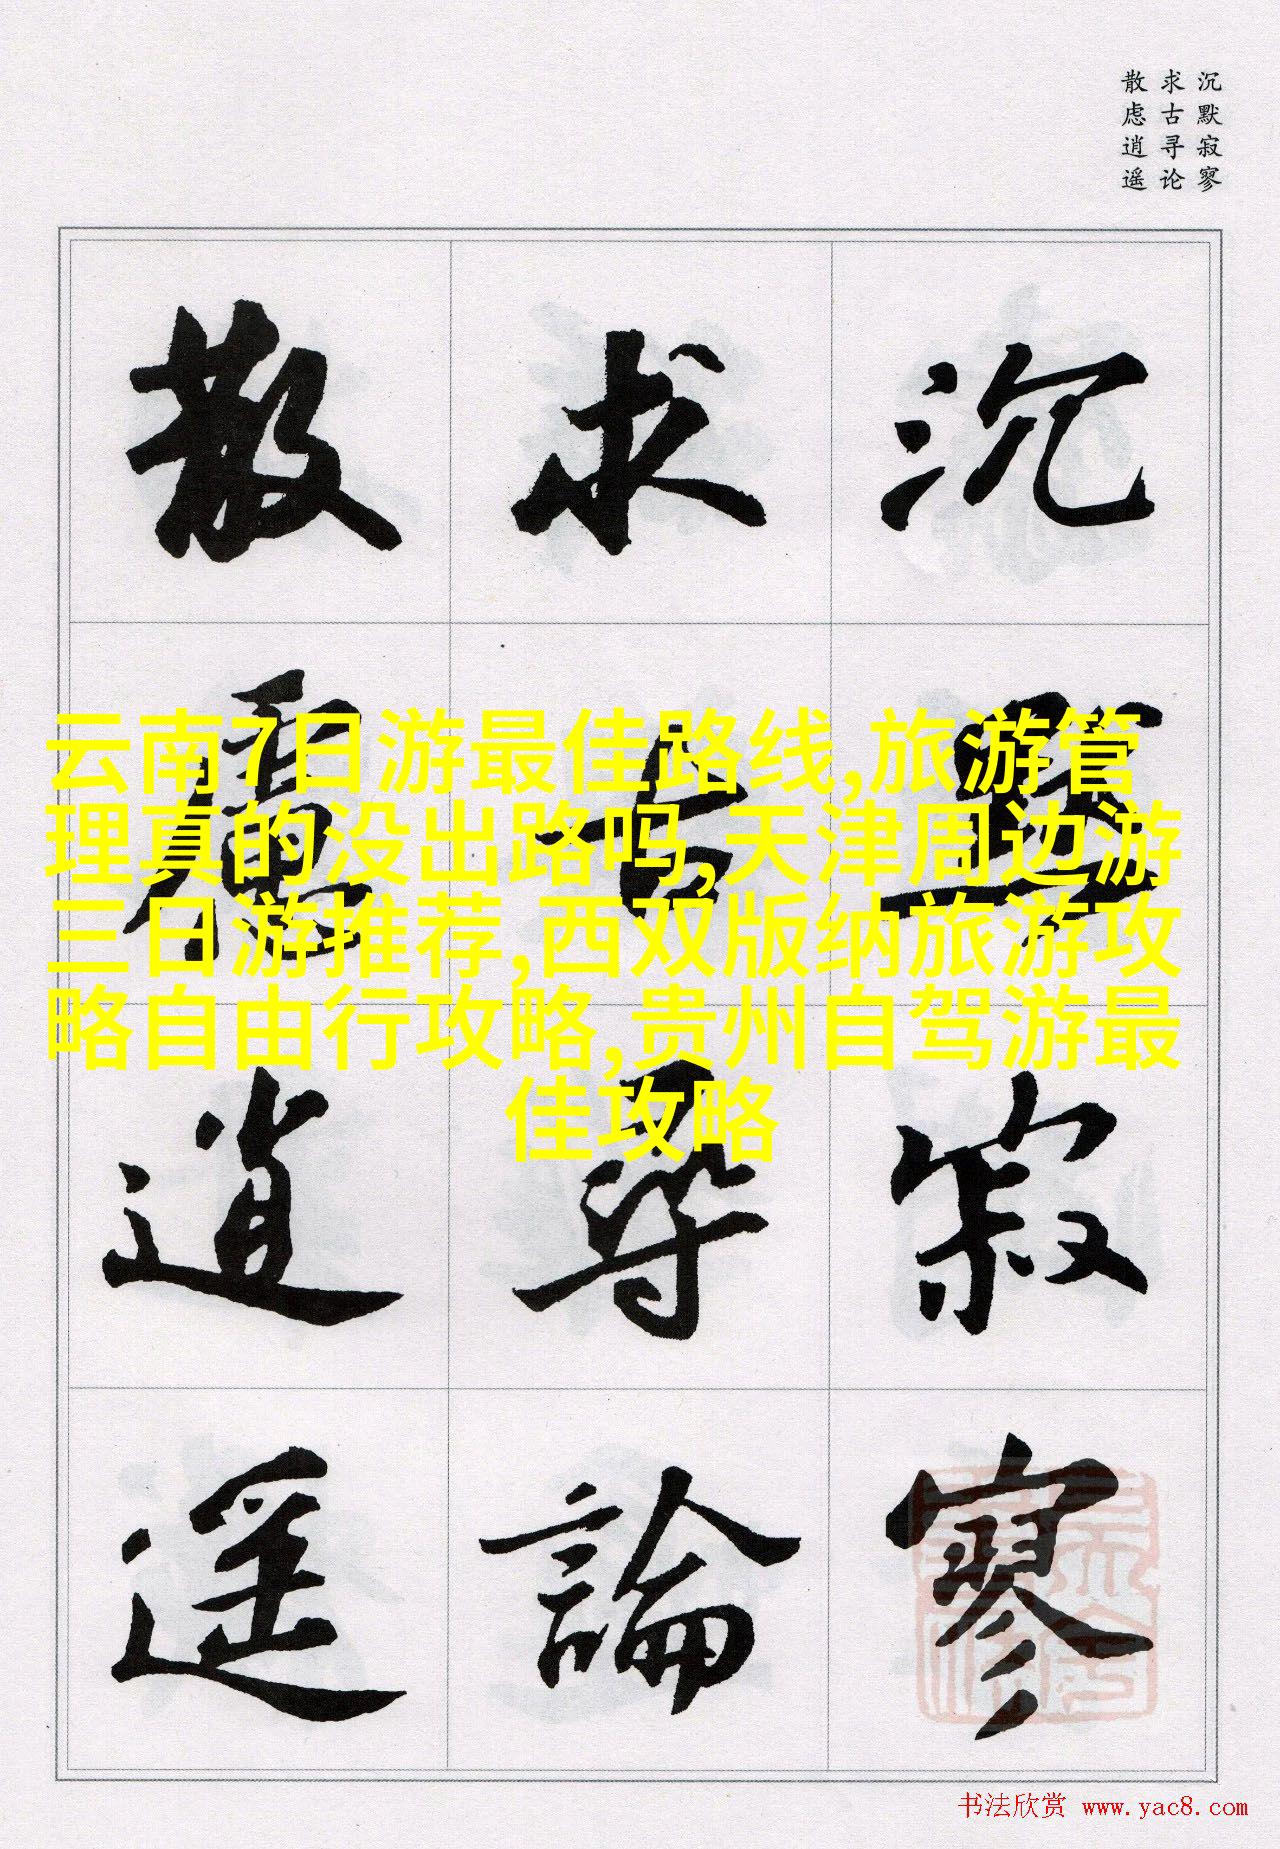 沉默寂寥
求古寻论
散虑逍遥
沉默寂寥
求古尋論
散慮逍遥
云南7日游最佳路线,旅游管
理真的没出路吗,天津周边游
三日游推荐,西双版纳旅游攻
略自由行攻略,贵州自驾游最
佳攻略
书法欣赏 www.yac8.com